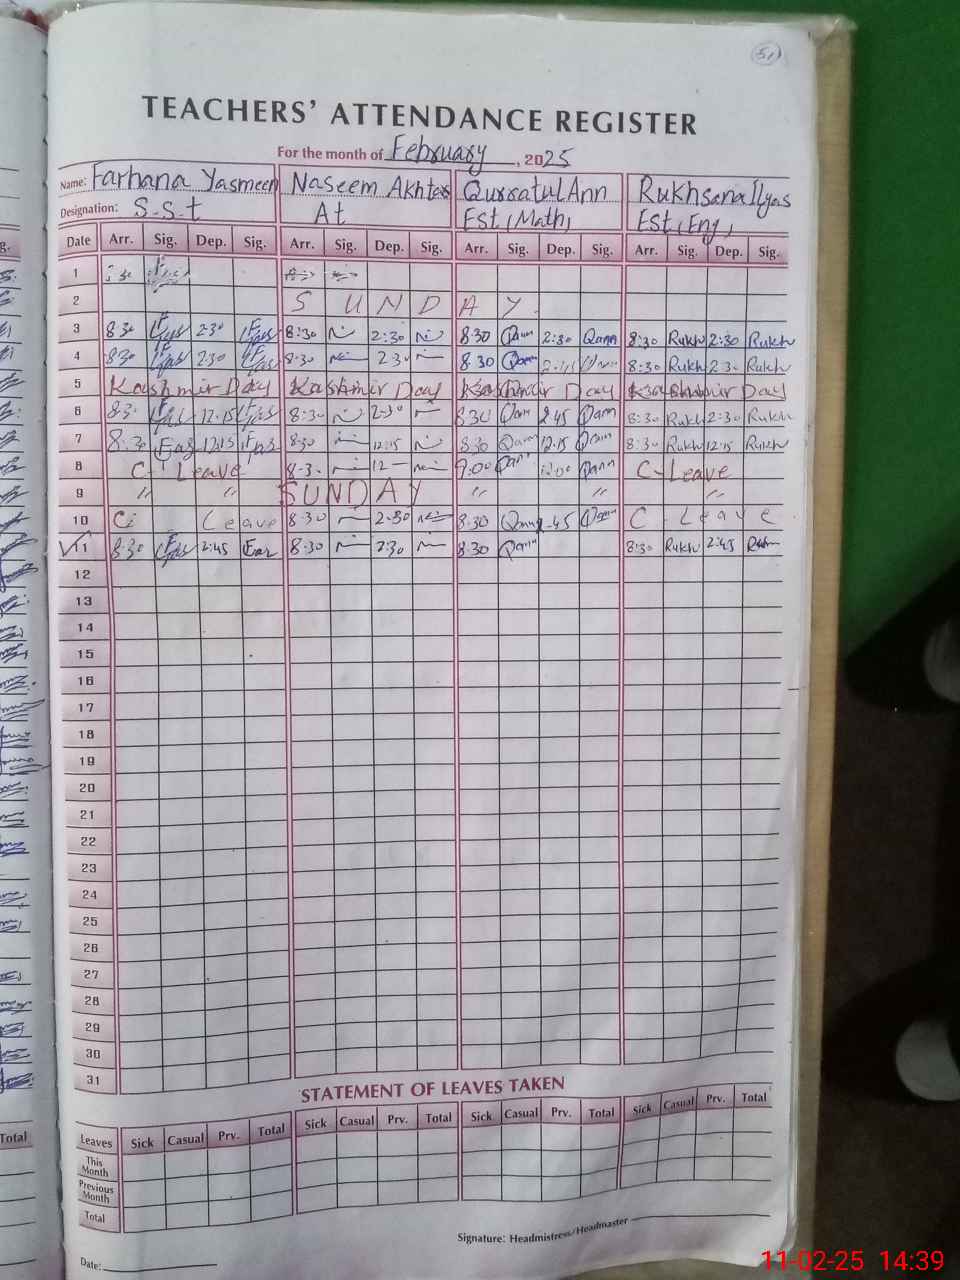 51
TEACHERS' ATTENDANCE REGISTER
For the month of February, 2025
Name: Farhana Yasmeen Naseem Akhtar Qurratul Ann Rukhsana Ilyas
Designation: S.S.t At Est (Math) Est (Eng)
Date Arr. Sig. Dep. Sig. Arr. Sig. Dep. Sig. Arr. Sig. Dep. Sig. Arr. Sig. Dep. Sig.
1
2 SUNDAY
3 830 2:30 8:30 2:30 830 Qann 2:30 Qann 8:30 Rukh 2:30 Rukh
4 830 230 8:30 2:30 830 Qann 8:30 Rukh 2:30 Rukh
5 Kashmir Day Kashmir Day Kashmir Day Kashmir Day
6 830 12.15 8:30 2:30 830 Qann 2 45 Qann 8:30 Rukh 2:30 Rukh
7 8:30 12:15 8:30 12:15 830 Qann 12:15 Qann 8:30 Rukh 12:15 Rukh
8 C- Leave 8-30 12 9:00 Qann 12:00 Qann C-Leave
9 " " SUNDAY " " "
10 Leave 8:30 2:30 8:30 Qann 45 Qann C Leave
11 8:30 2:45 8:30 2:30 8:30 Qann 8:30 Rukh 2:45
12
13
14
15
16
17
18
19
20
21
22
23
24
25
26
27
28
29
30
31
STATEMENT OF LEAVES TAKEN
Leaves Sick Casual Prv. Total Sick Casual Prv. Total Sick Casual Prv. Total Sick Casual Prv. Total
This Month
Previous Month
Total
Signature: Headmistress/Headmaster
Date:
Total
11-02-25 14:39